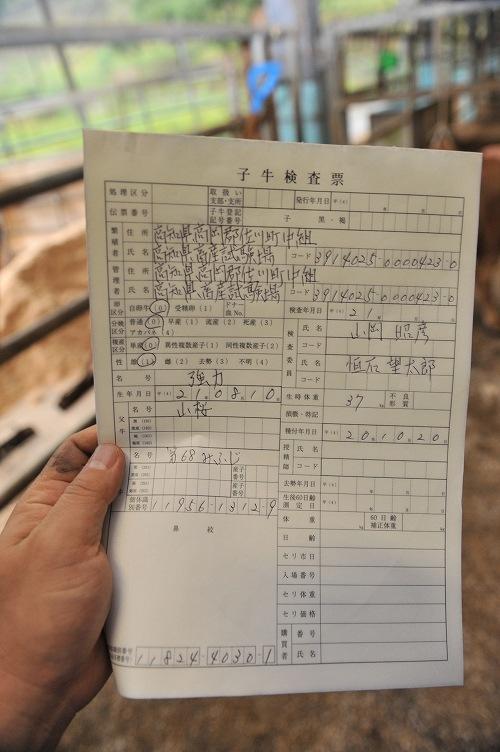 子牛検査票
処理区分 取扱い支部・支所 発行年月日 平(4) 年 月 日
伝票番号 子牛登記記号番号 子 黒・褐
繁殖者 住所 高知県高岡郡佐川町中組
氏名 高知県畜産試験場 コード 3914025-0000423-0
管理者 住所 高知県高岡郡佐川町中組
氏名 高知県畜産試験場 コード 3914025-0000423-0
卵区分 自卵牛(0) 受精卵(1) ドナー血No. 検査年月日 平(4) 21年 月 日
分娩区分 普通(0) 早産(1) 流産(2) 死産(3) アカバネ(4)
検査委員 氏名 山岡 昭彦
コード
複産区分 単産(0) 異性複数産子(1) 同性複数産子(2)
性 雄(1) 雌(2) 去勢(3) 不明(4)
氏名 恒石 望太郎
コード
名号 強力
生時体重 37 kg 不良形質
生年月日 平(4) 21年08月10日
損徴・特記
父牛 名号 山桜
種付年月日 平(4) 20年10月20日
名号 第68みふじ
授精師 氏名
コード
産子番号
去勢年月日 平(4) 年 月 日
個体識別番号 11956-1312-9
生後60日齢測定日 平(4) 年 月 日
鼻紋
体重 kg 60日齢補正体重 kg
日齢
セリ市日
入場番号
セリ体重
セリ価格
購買者 番号
氏名
11824-4030-1